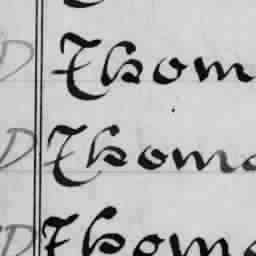 D Thom
D Thoma
D Thoma